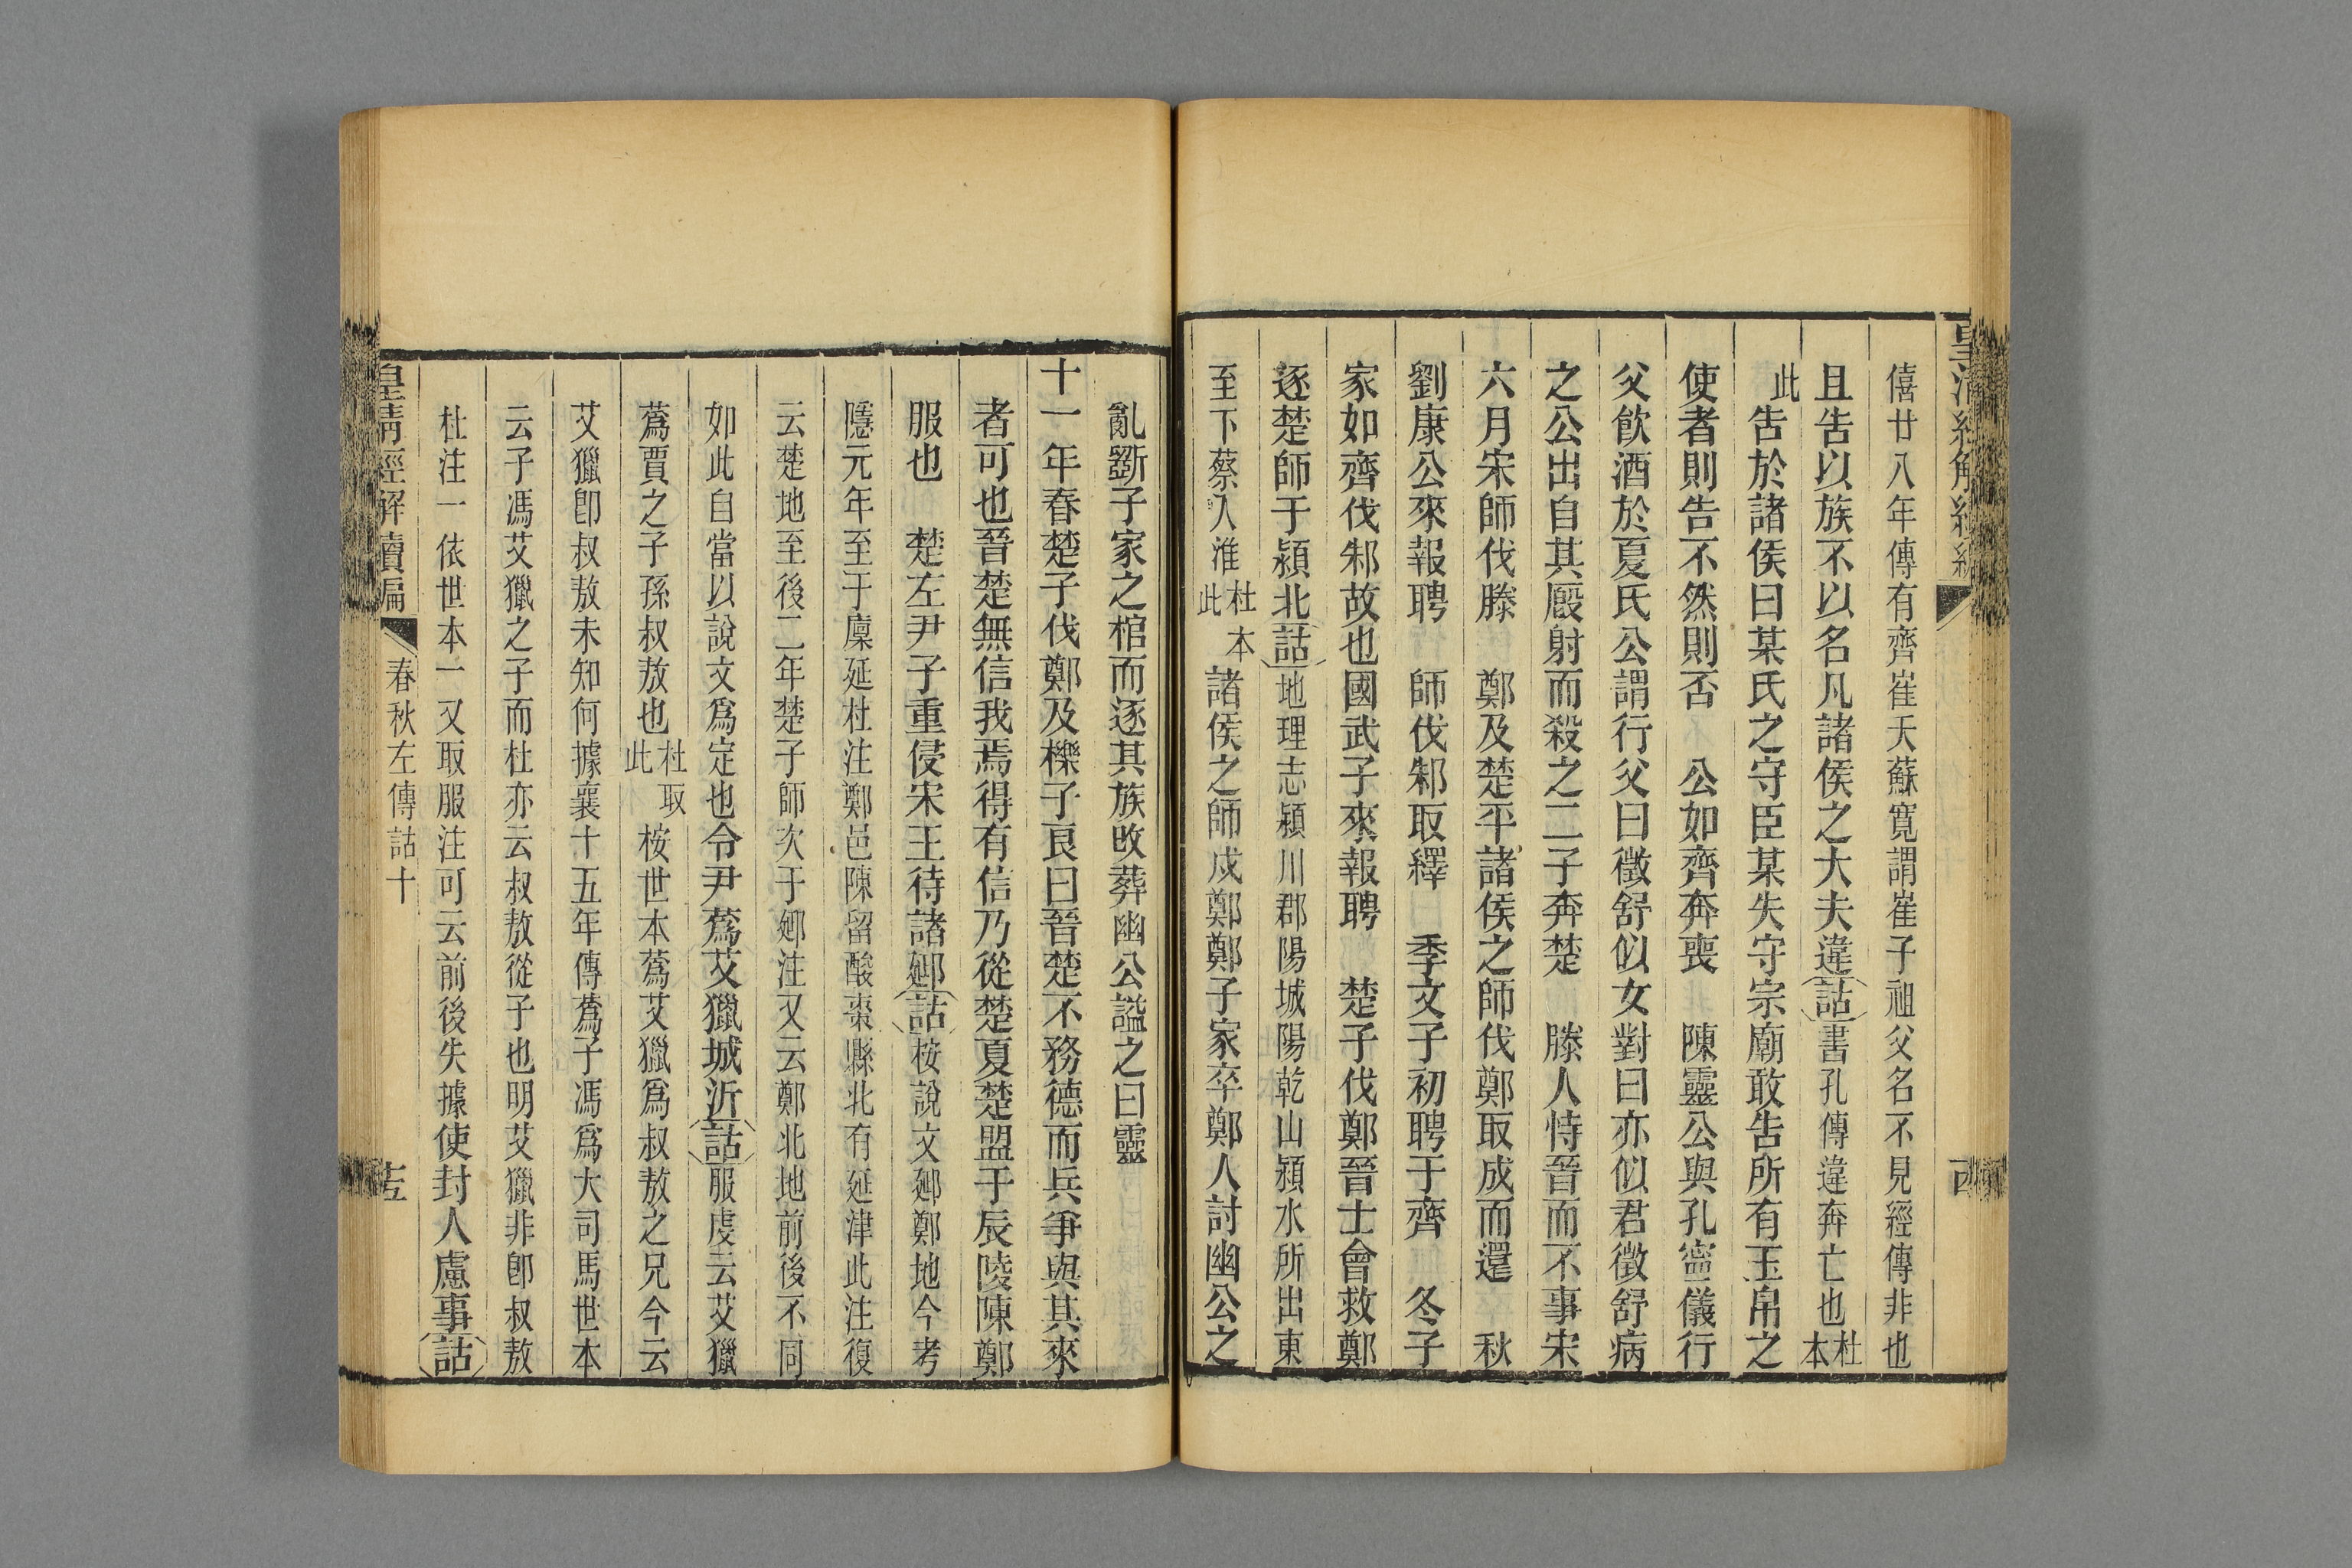 僖廿八年傳有齊崔夭蘇寬謂崔子祖父名不見經傳非也
且告以族不以名凡諸侯之大夫違詁書孔傳違奔亡也杜本
此告於諸侯曰某氏之守臣某失守宗廟敢告所有玉帛之
使者則告不然則否　公如齊奔喪　陳靈公與孔寧儀行
父飲酒於夏氏公謂行父曰徵舒似女對曰亦似君徵舒病
之公出自其廄射而殺之二子奔楚　滕人恃晉而不事宋
六月宋師伐滕　鄭及楚平諸侯之師伐鄭取成而還　秋
劉康公來報聘　師伐邾取繹　季文子初聘于齊　冬子
家如齊伐邾故也國武子來報聘　楚子伐鄭晉士會救鄭
逐楚師于潁北詁地理志潁川郡陽城陽乾山潁水所出東
至下蔡入淮杜本此諸侯之師戍鄭鄭子家卒鄭人討幽公之
亂斲子家之棺而逐其族改葬幽公謚之曰靈
十一年春楚子伐鄭及櫟子良曰晉楚不務德而兵爭與其來
者可也晉楚無信我焉得有信乃從楚夏楚盟于辰陵陳鄭
服也　楚左尹子重侵宋王待諸郔詁桉說文郔鄭地今考
隱元年至于廩延杜注鄭邑陳留酸棗縣北有延津此注復
云楚地至後二年楚子師次于郔注又云鄭北地前後不同
如此自當以說文爲定也令尹蒍艾獵城沂詁服虔云艾獵
蒍賈之子孫叔敖也杜取此桉世本蒍艾獵爲叔敖之兄今云
艾獵卽叔敖未知何據襄十五年傳蒍子馮爲大司馬世本
云子馮艾獵之子而杜亦云叔敖從子也明艾獵非卽叔敖
杜注一依世本一又取服注可云前後失據使封人慮事詁
皇清經解續編　春秋左傳詁十　十五